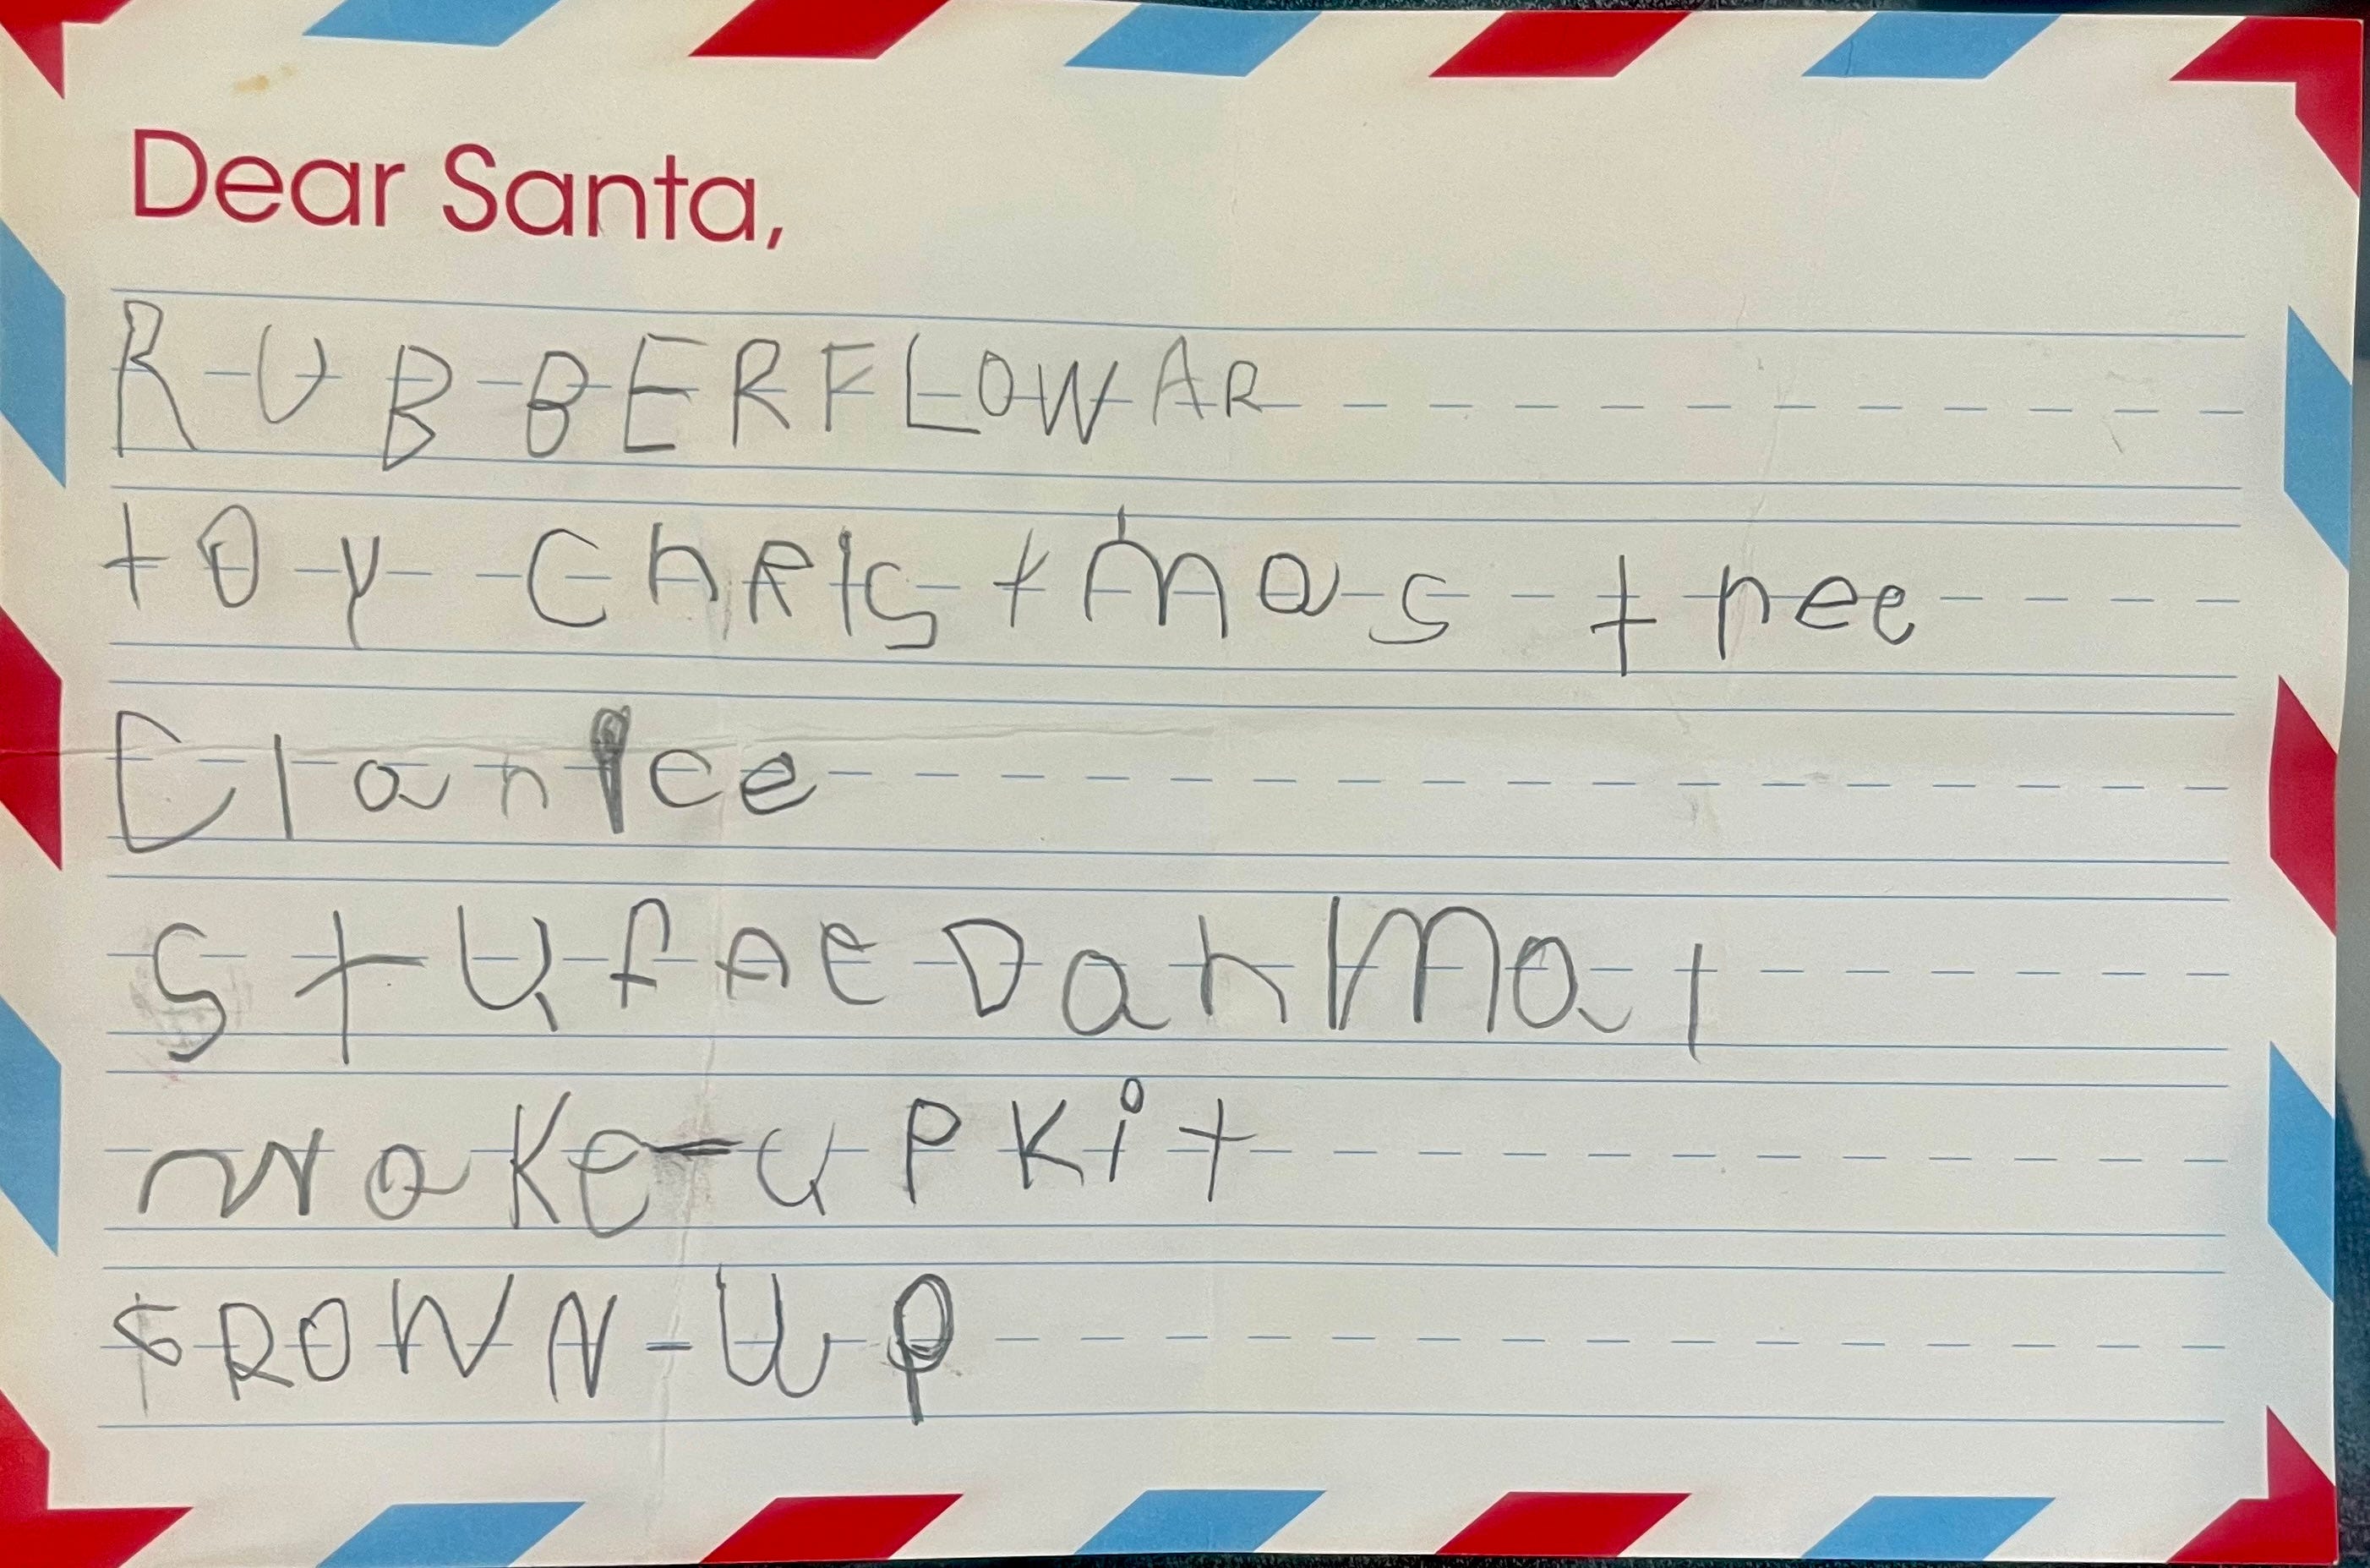 Dear Santa,
RUBBERFLOWAR
toy ChRIstmas tree
Clarice
StUffAeD anMal
make-up Kit
GROWN-UP